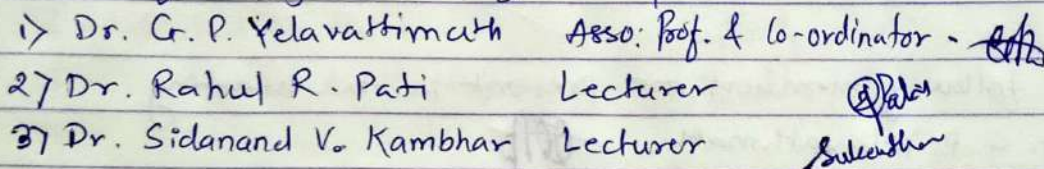 1) Dr. G. P. Yelavattimath Asso: Prof. & Co-ordinator -
2) Dr. Rahul R. Pati Lecturer
3) Dr. Sidanand V. Kambhar Lecturer